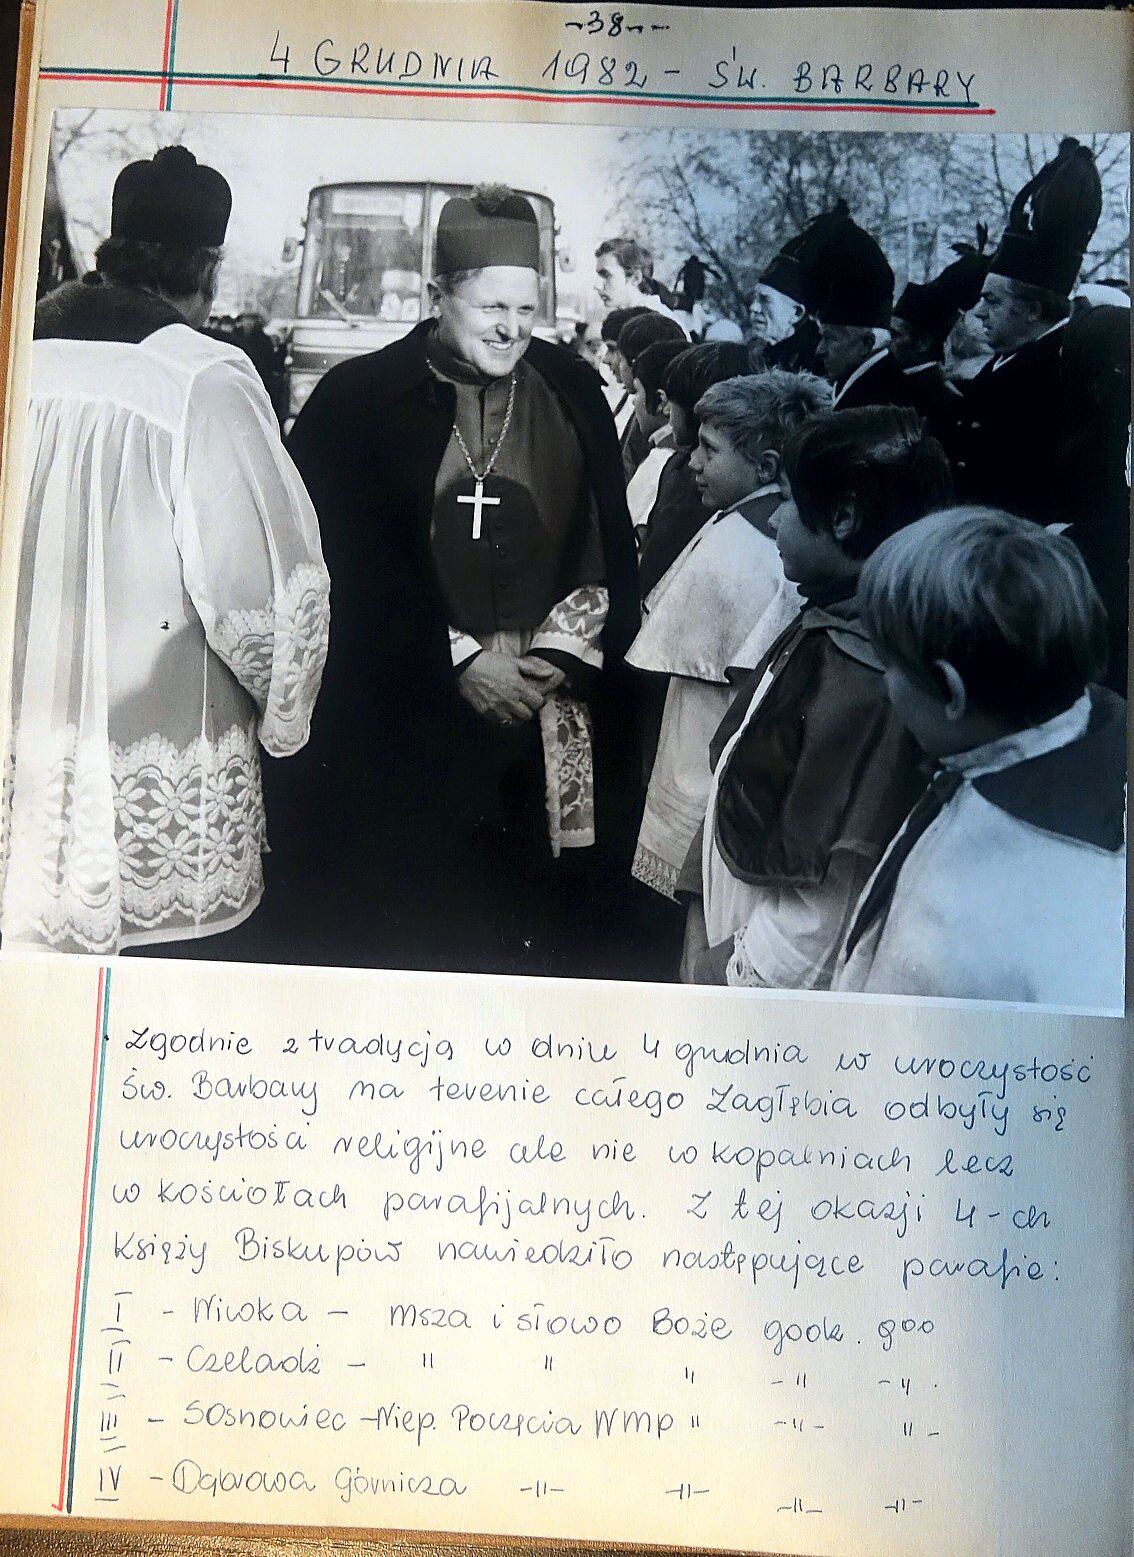 -38--
4 GRUDNIA 1982 - ŚW. BARBARY
Zgodnie z tradycją w dniu 4 grudnia w uroczystość
Św. Barbary na terenie całego Zagłębia odbyły się
uroczystości religijne ale nie w kopalniach lecz
w kościołach parafijalnych. Z tej okazji 4-ch
Księży Biskupów nawiedziło następujące parafie:
I - Niwka - Msza i słowo Boże godz. 9⁰⁰
II - Czeladź - " " " -"- -"-
III - Sosnowiec - Niep. Poczęcia NMP " -"- "-
IV - Dąbrowa Górnicza -"- -"- -"- -"-